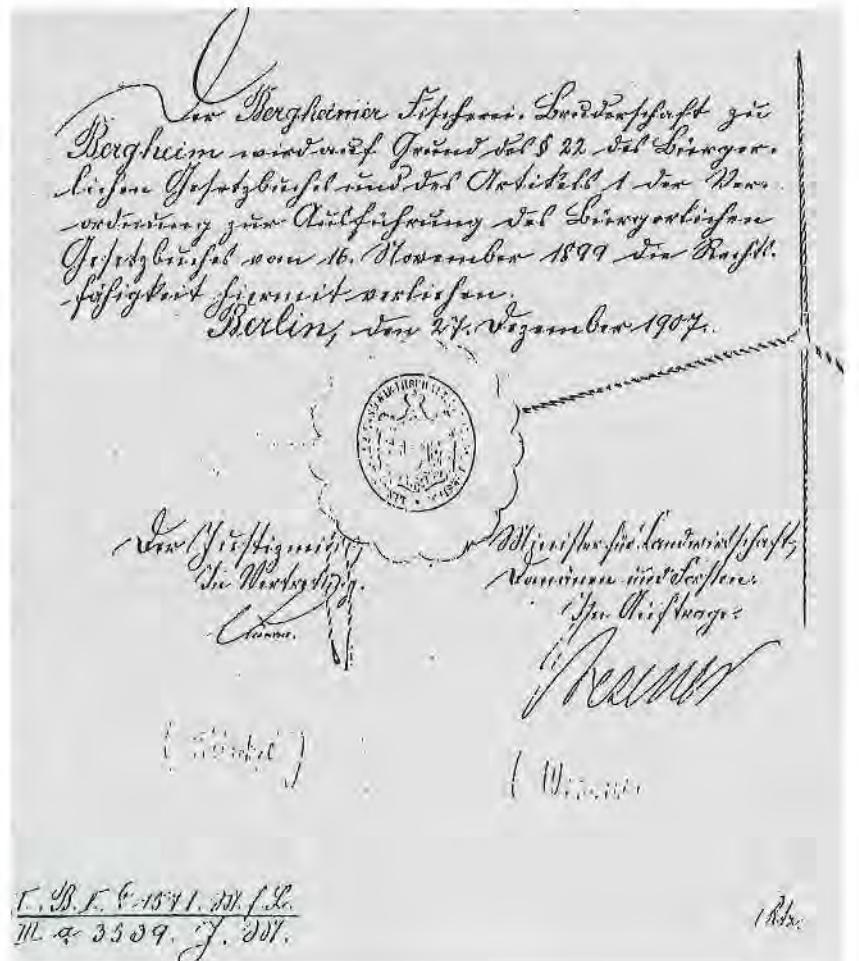 Der Bergheimer Fischerei-Bruderschaft zu
Bergheim wird auf Grund des § 22 des Bürger-
lichen Gesetzbuches und des Artikels 1 der Ver-
ordnung zur Ausführung des Bürgerlichen
Gesetzbuches vom 16. November 1899 die Rechts-
fähigkeit hiermit verliehen.
Berlin, den 27. Dezember 1907.
Der Justizminister
Minister für Landwirtschaft,
In Vertretung.
Domänen und Forsten.
Im Auftrage:
III a 3539. J. M.